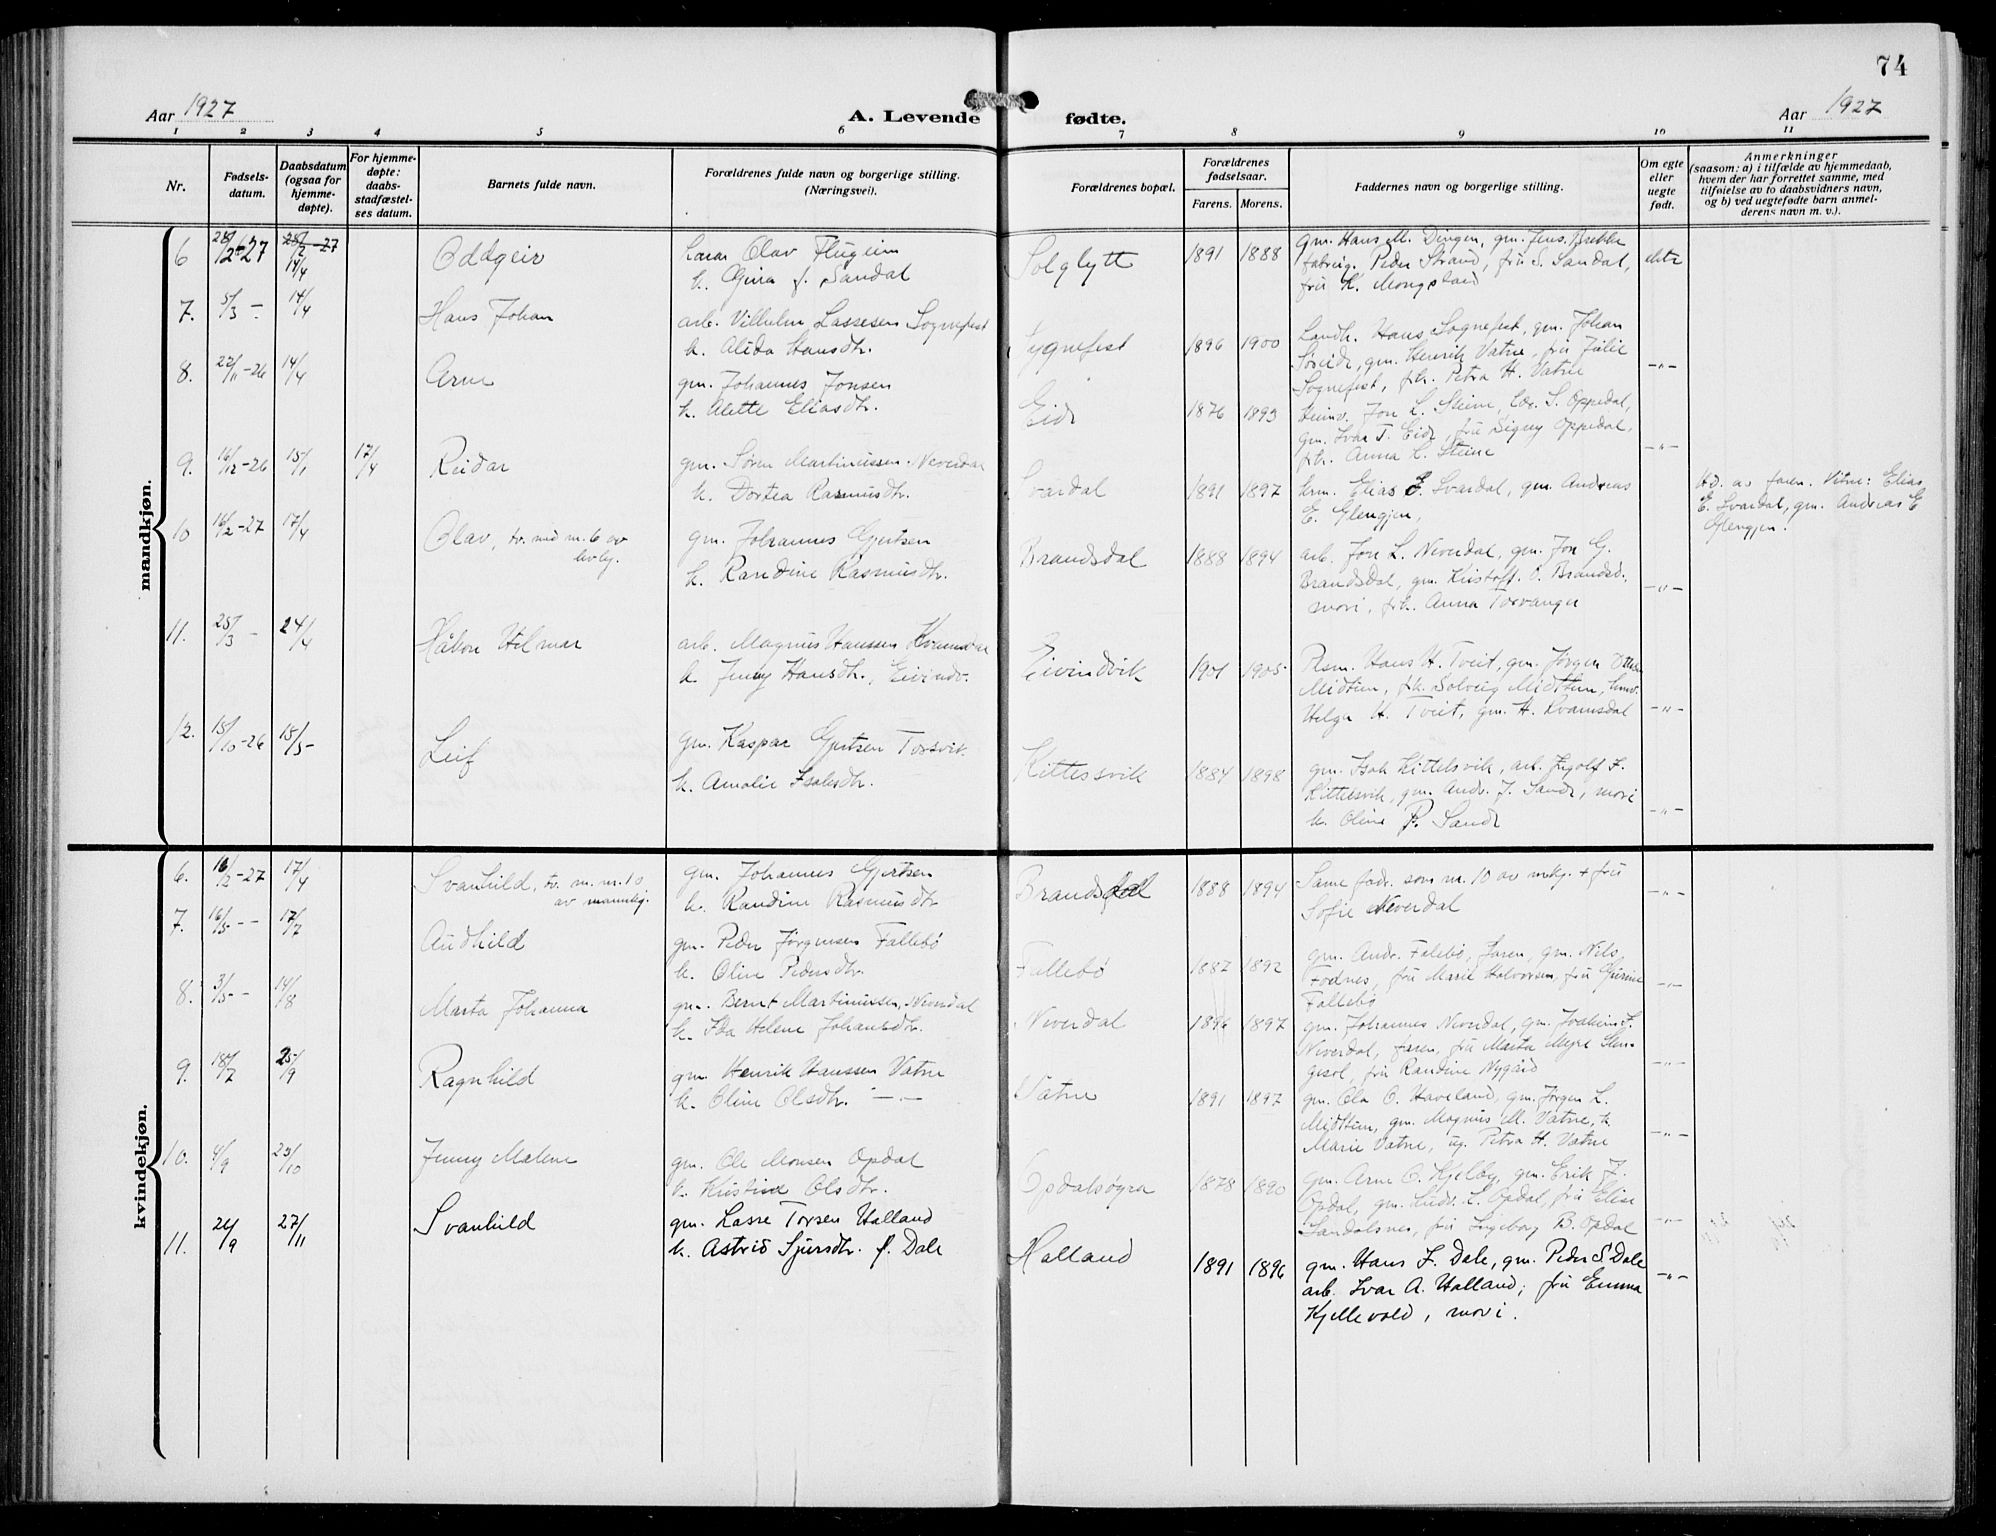 74
Aar 1927
A. Levende fødte.
Aar 1927
1 2 3 4 5 6 7 8 9 10 11
Nr.
Fødsels-
datum.
Daabsdatum
(ogsaa for
hjemme-
døpte).
For hjemme-
døpte:
daabs-
stadfæstel-
ses datum.
Barnets fulde navn.
Forældrenes fulde navn og borgerlige stilling.
(Næringsvei).
Forældrenes bopæl.
Forældrenes
fødselsaar.
Farens. Morens.
Faddernes navn og borgerlige stilling.
Om egte
eller
uegte
født.
Anmerkninger
(saasom: a) i tilfælde av hjemmedaab,
hvem der har forrettet samme, med
tilføielse av to daabsvidners navn,
og b) ved uegtefødte barn anmel-
derens navn m. v.).
mandkjøn.
6 28/2-27 14/4 Oddgeir
Olav Flugeim
k. Gina f. Sandal
Solglytt 1891 1888
gm. Hans M. Dingen, gm. Jens Brekke
Peder Strand, fru S. Sandal,
fru K. Mongstad
ekte
7. 5/3 - 14/4 Hans Johan
arb. Vilhelm Lassesen Sognefest
k. Alida Hansdtr.
Sygnefest 1896 1900
Landh. Hans Sognefest, gm. Johan
Søreide, gm. Henrik Vatne, fru Julie
Sognefest, frk. Petra H. Vatne
-"-
8. 22/11-26 14/4 Arne
gm. Johannes Jonsen
k. Alette Eliasdtr.
Eide 1876 1893
Jon L. Steine, lær. S. Oppedal,
gm. Ivar T. Eide, fru Signy Oppedal,
frk. Anna L. Steine
-"-
9. 16/12-26 15/1 17/4 Reidar
gm. Søren Martinussen Neverdal
k. Dortea Rasmusdtr.
Svardal 1891 1897
krm. Elias E. Svardal, gm. Andreas
E. Glengjen,
Hd. av faren. Vitne: Elias
E. Svardal, gm. Andreas E
Glengjen.
10 16/2-27 17/4 Olav, tv. med nr. 6 av
kvkj.
gm. Johannes Gjertsen
k. Randine Rasmusdtr.
Brandsdal 1888 1894
arb. Jon L. Neverdal, gm. Jon G.
Brandsdal, gm. Kristoff. O. Brandsd.,
mori, frk. Anna Torvanger
-"-
11. 25/3 - 24/4 Håkon Hilmar
arb. Magnus Hanssen Kvamsdal
k. Jenny Hansdtr., Eivindv.
Eivindvik 1901 1905
Hans H. Tveit, gm. Jørgen
Midttun, frk. Solveig Midttun,
Helga H. Tveit, gm. H. Kvamsdal
-"-
12. 15/10-26 15/5- Leif
gm. Kaspar Gjertsen Torsvik
k. Amalie Isaksdtr.
Kittelsvik 1884 1898
gm. Isak Kittelsvik, arb. Ingolf I.
Kittelsvik, gm. Andr. J. Sande, mori
k. Oline P. Sande
-"-
kvindekjøn.
6. 16/2-27 17/4 Svanhild, tv. m. nr. 10
av mannkj.
gm. Johannes Gjertsen
k. Randine Rasmusdtr
Brandsdal 1888 1894
Same fadr. som nr. 10 av mkj. + fru
Sofie Neverdal
-"-
7. 16/5 -- 17/7 Audhild
gm. Peder Jørgensen Fallebø
k. Oline Pedersdtr.
Fallebø 1887 1892
gm. Andr. Falebø, faren, gm. Nils
Fodnes, fru Marie Halvorsen, fru
Fallebø
-"-
8. 3/5 -- 14/8 Marta Johanna
gm. Bernt Martinussen Neverdal
k. Ida Helene Johansdtr.
Neverdal 1896 1897
gm. Johannes Neverdal, gm. Joakim I.
Neverdal, faren, fru Marta Mejre Slen-
gesol, fru Randine Nygård
-"-
9. 18/7 25/9 Ragnhild
gm. Henrik Hanssen Vatne
k. Oline Olsdtr. -"-
Vatne 1891 1897
gm. Ola O. Haveland, gm. Jørgen L.
Midttun, gm. Magnus M. Vatne, k.
Marie Vatne, ug. Petra H. Vatne
-"-
10. 4/9 23/10 Jenny Malene
gm. Ole Monsen Opdal
k. Kristine Olsdtr.
Opdalsøyra 1878 1890
gm. Arne O. Kjelby, gm. Erik J.
Opdal, gm. Ludv. L. Opdal, fru Elise
Sandalsnes, fru Ingeborg B. Opdal
-"-
11. 26/9 27/11 Svanhild
gm. Lasse Torsen Halland
k. Astrid Sjursdtr. f. Dale
Halland 1891 1896
gm. Hans I. Dale, gm. Peder S. Dale
arb. Ivar A. Halland; fru Emma
Kjellevold, mori.
-"-